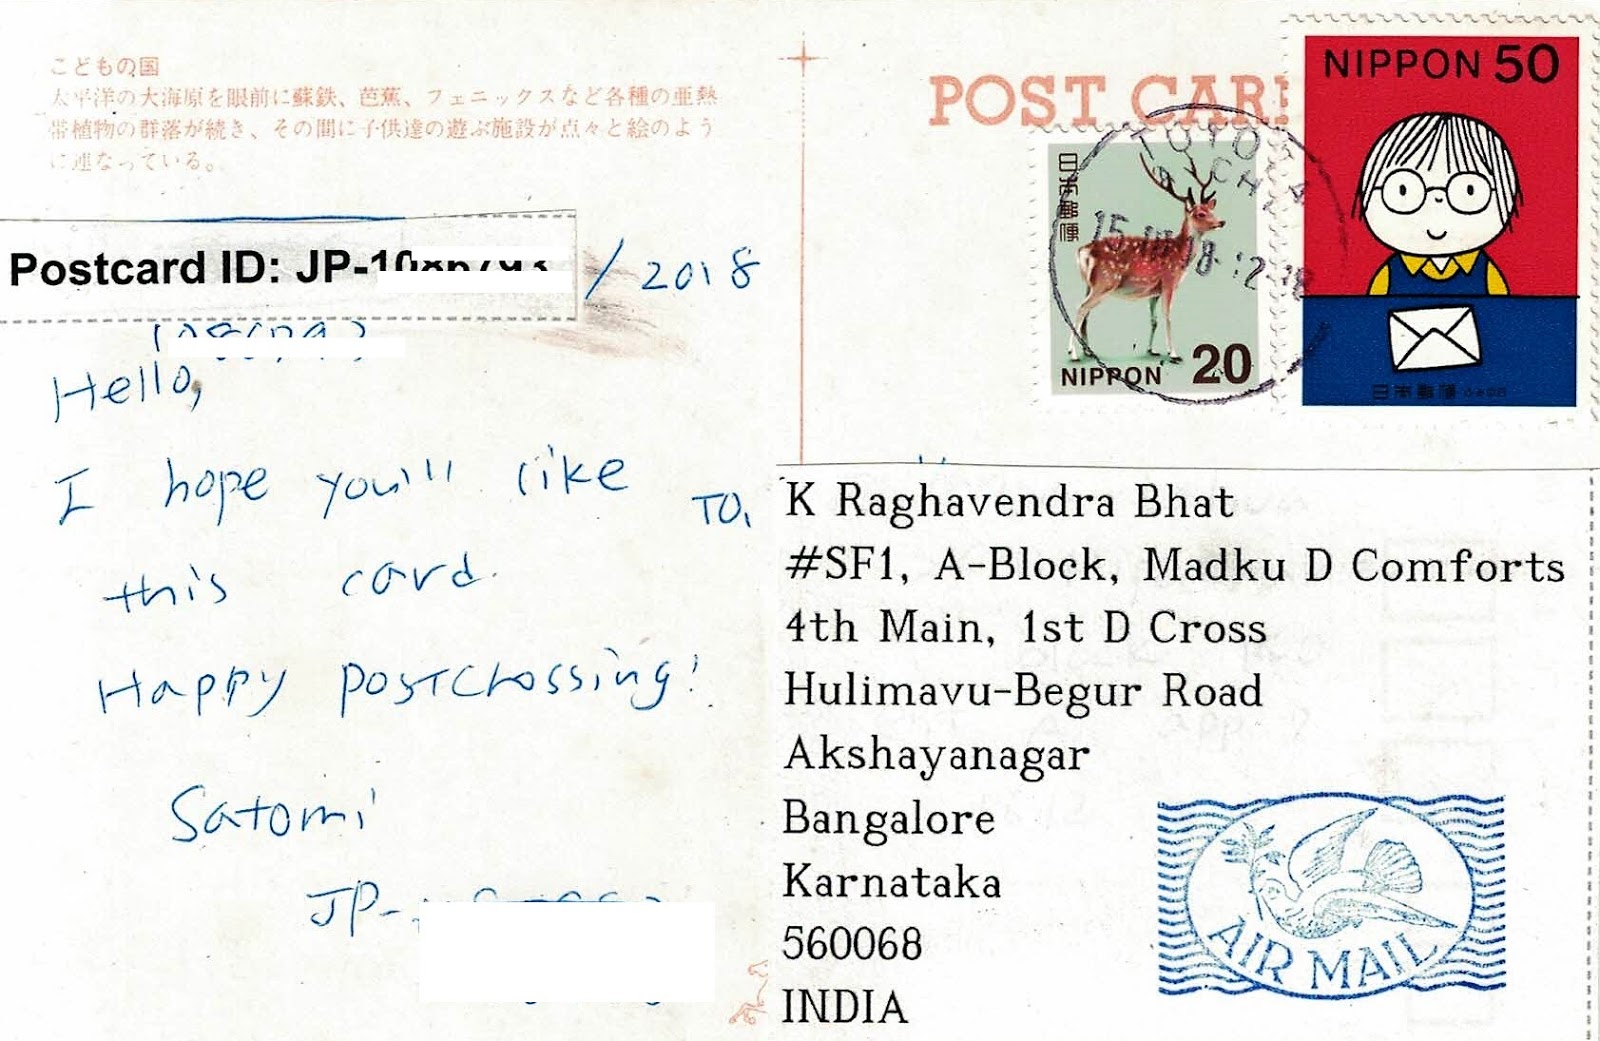 こどもの国
太平洋の大海原を眼前に蘇鉄、芭蕉、フェニックスなど各種の亜熱
帯植物の群落が続き、その間に子供達の遊ぶ施設が点々と絵のよう
に連なっている。
POST CAR
NIPPON 50
日本郵便
日本郵便
NIPPON 20
15.10.18.12-18
Postcard ID: JP-
/2018
Hello,
I hope you'll like
this card.
Happy postcrossing!
Satomi
JP-
TO,
K Raghavendra Bhat
#SF1, A-Block, Madku D Comforts
4th Main, 1st D Cross
Hulimavu-Begur Road
Akshayanagar
Bangalore
Karnataka
560068
INDIA
AIR MAIL